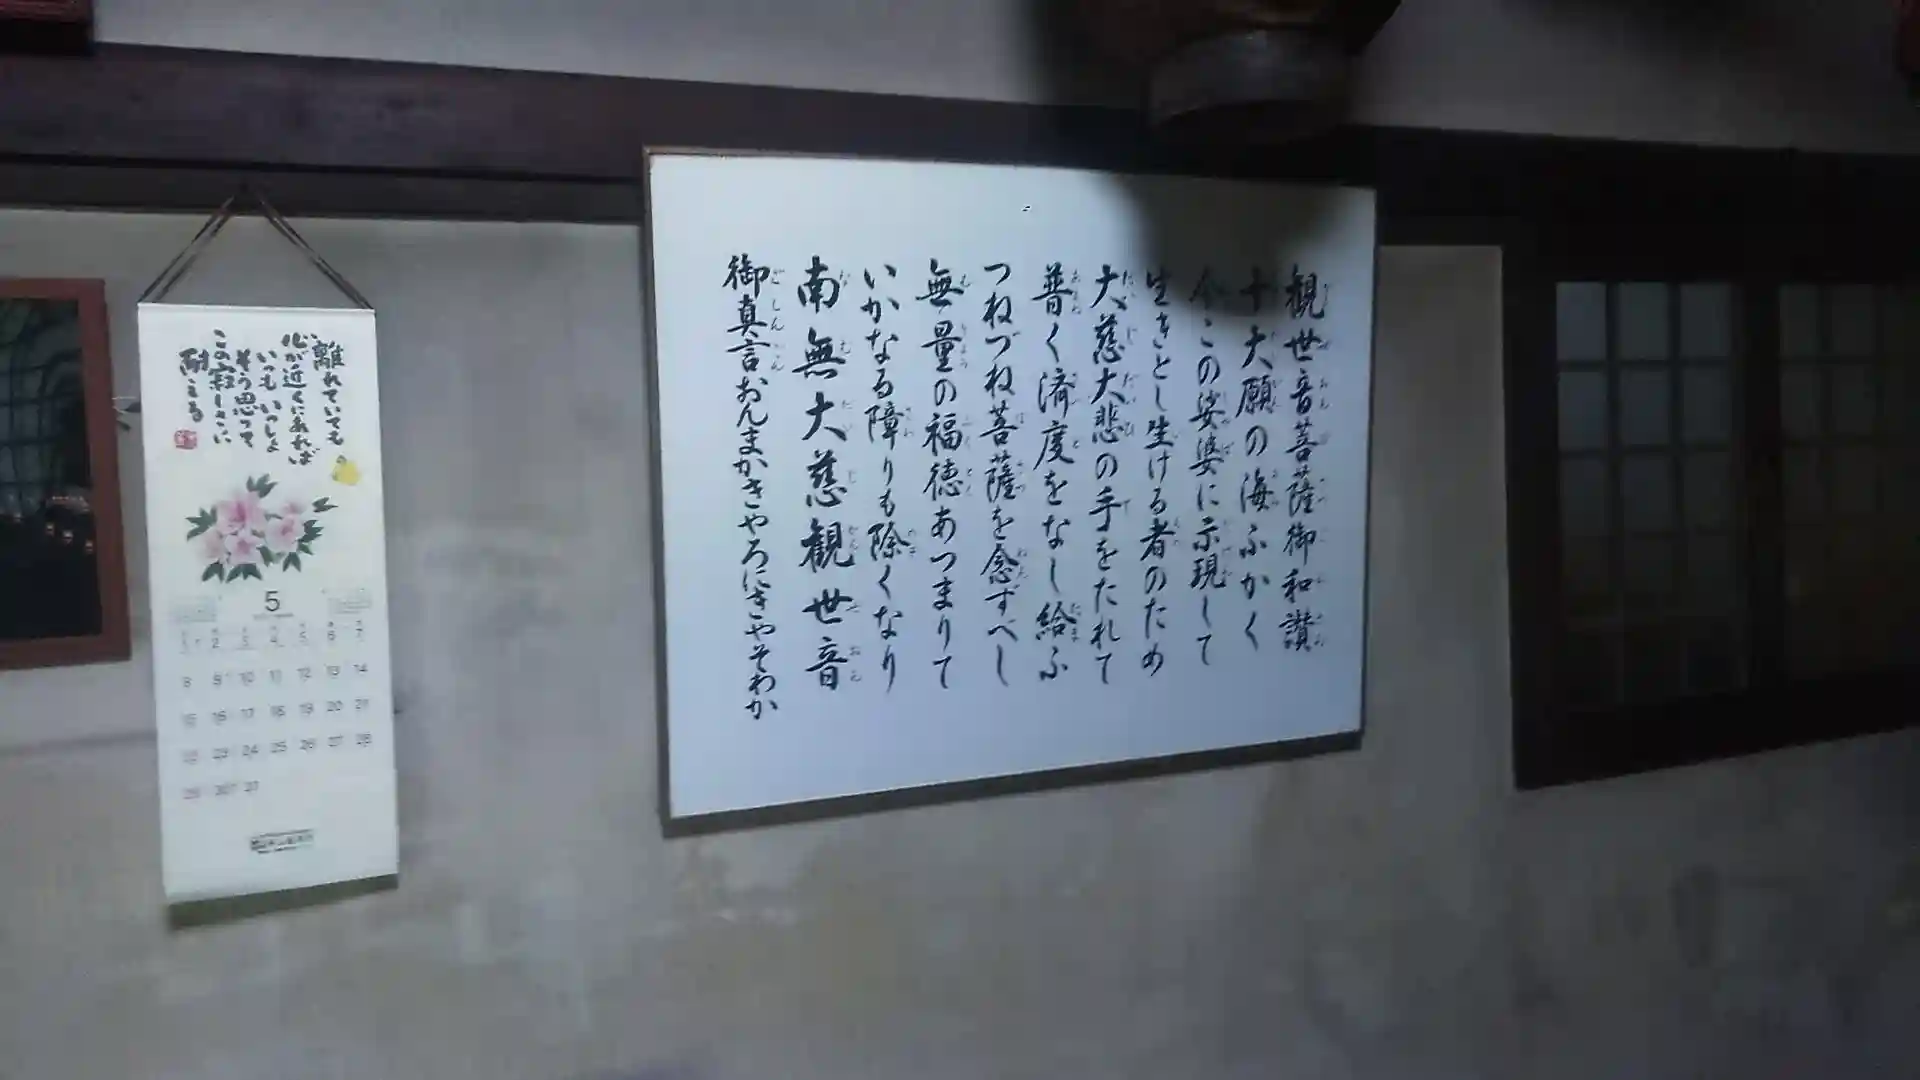 観世音菩薩御和讃
十大願の海ふかく
今この娑婆に示現して
生きとし生ける者のため
大慈大悲の手をたれて
普く済度をなし給ふ
つねづね菩薩を念ずべし
無量の福徳あつまりて
いかなる障りも除くなり
南無大慈観世音
御真言おんまかきやろにきやそわか
離れていても
心が近くにあれば
いつもいっしょ
そう思って
この寂しさに
耐える
5
1 2 3 4 5 6 7
8 9 10 11 12 13 14
15 16 17 18 19 20 21
22 23 24 25 26 27 28
29 30 31